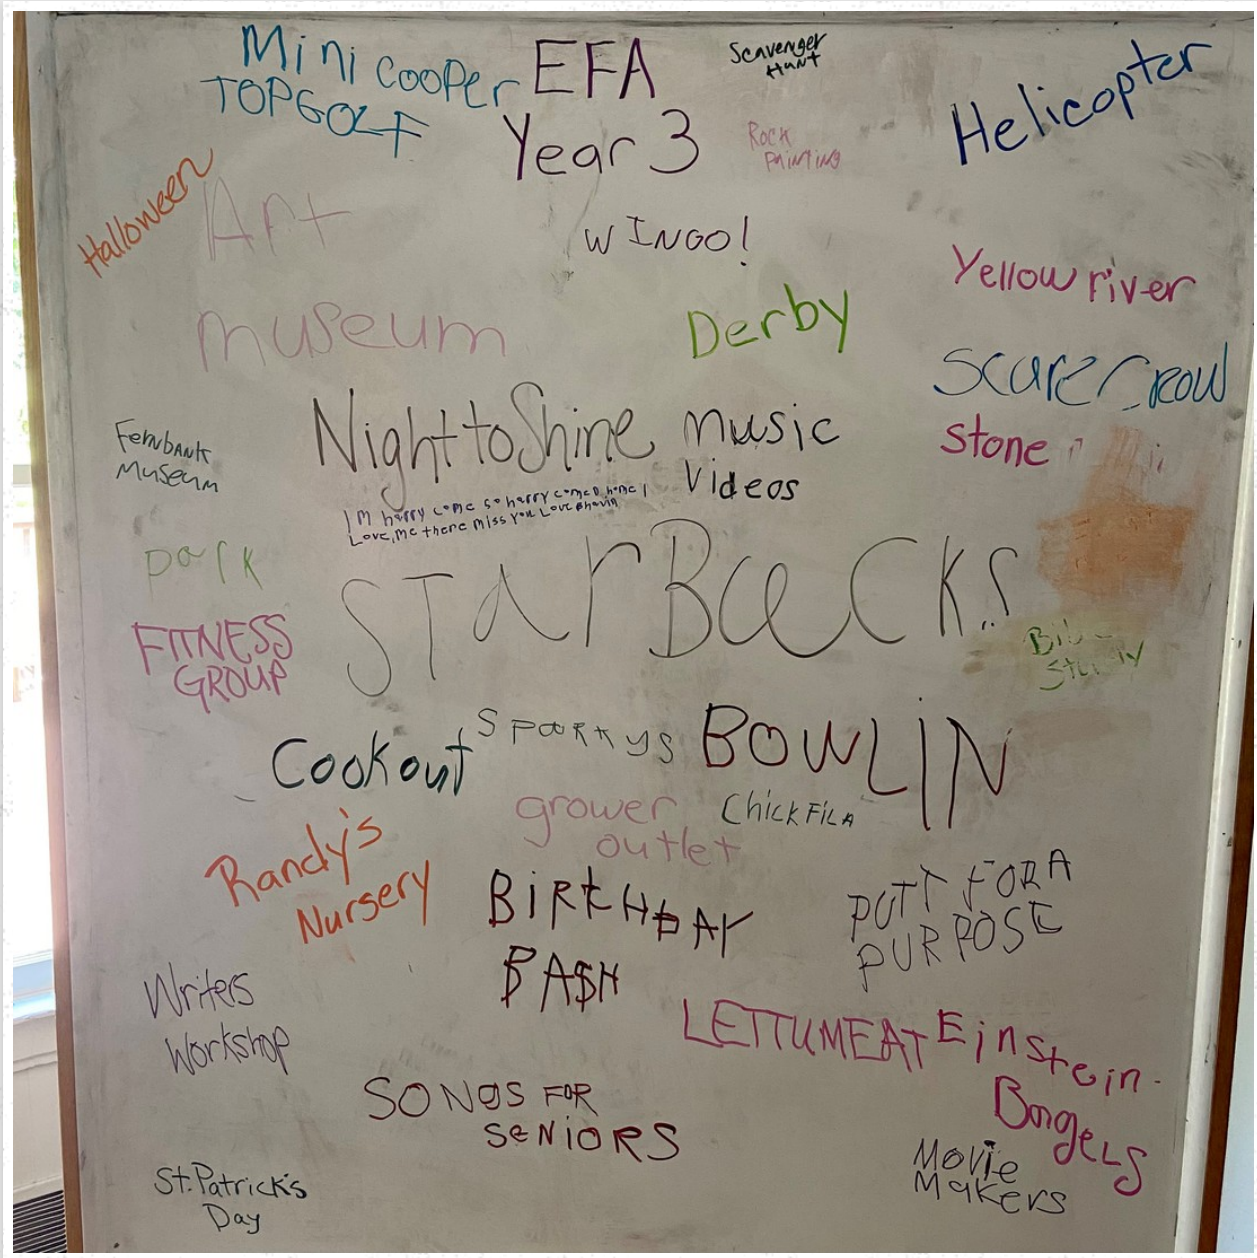 Mini Cooper
TOPGOLF
EFA
Year 3
Scavenger
Hunt
Rock
Painting
Helicopter
Halloween
Art
museum
WINGO!
Yellow river
Derby
Scarecrow
Stone
Fernbank
Museum
Night to Shine
music
Videos
I'm happy come so happy comed home I
Love, me there miss you Love
park
STarBucKs
FITNESS
GROUP
Bible
Study
Cookout
Sparkys
BOWLIN
grower
outlet
Chick Fil A
Randy's
Nursery
BiRtHDAY
BASH
PUTT FOR A
PURPOSE
Writers
Workshop
LETTUMEAT
Einstein
BageLs
SONGS FOR
SENIORS
Movie
Makers
St. Patrick's
Day